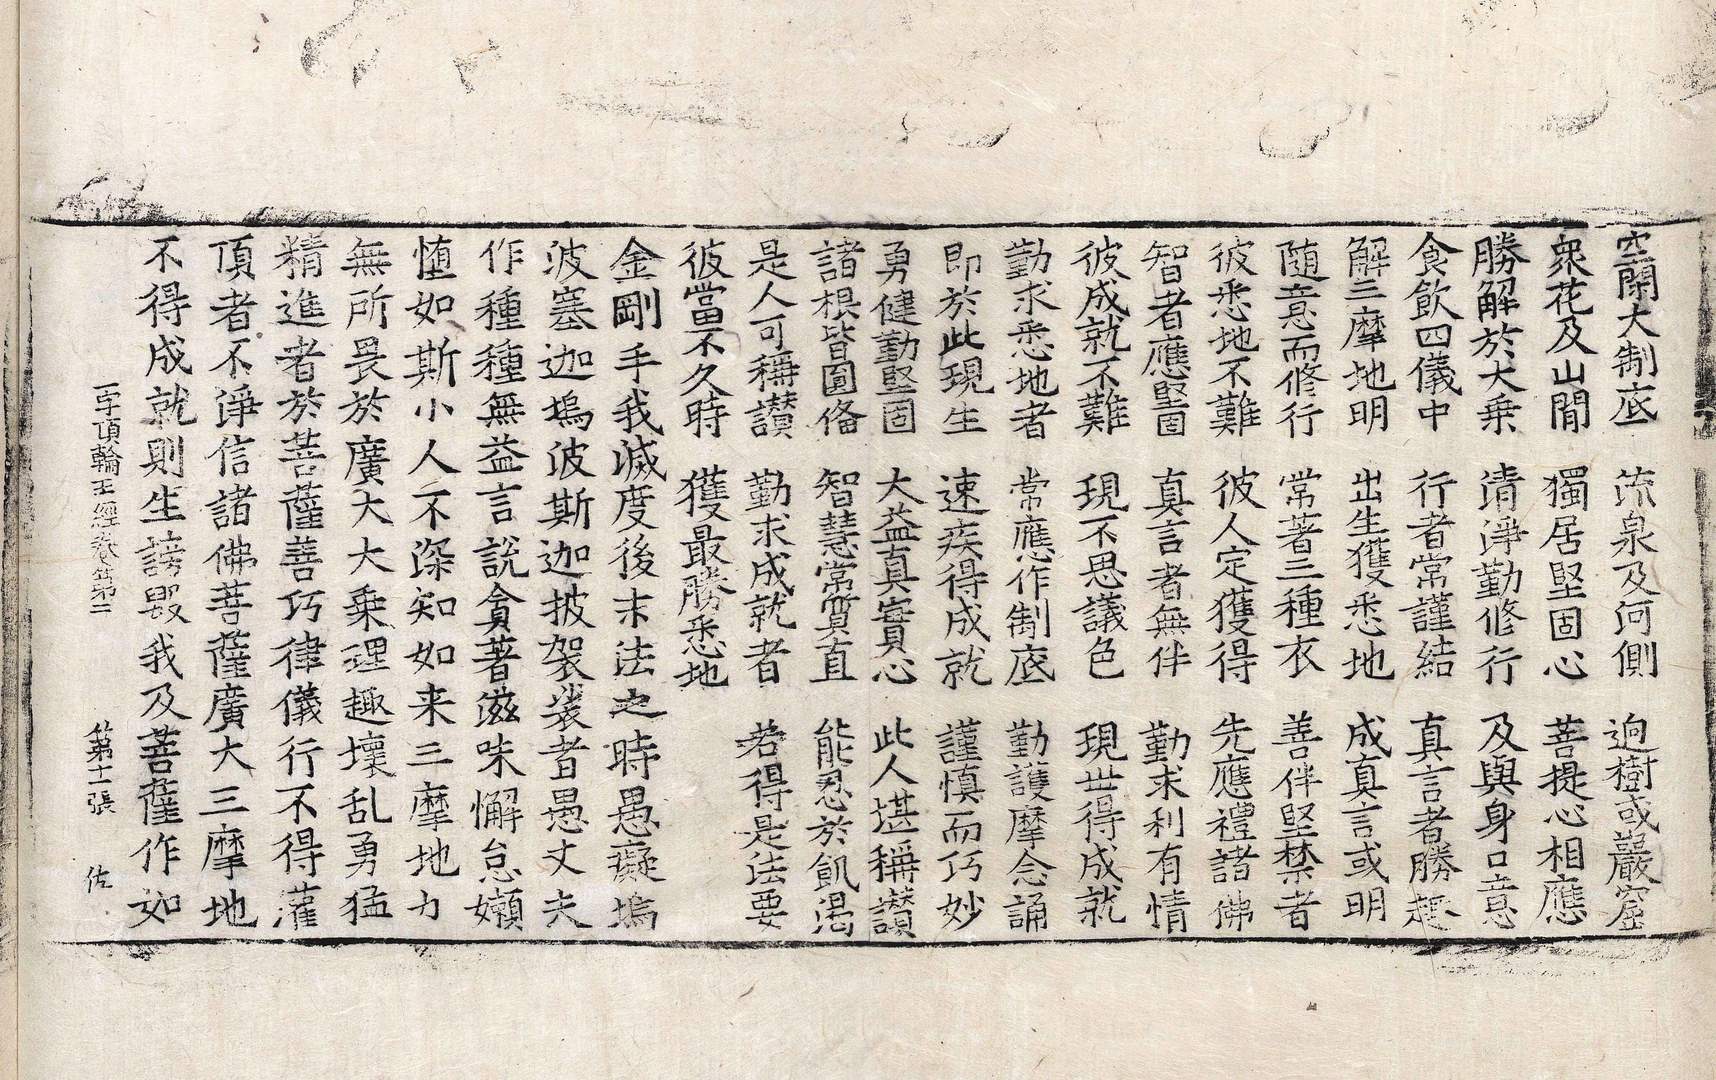 空閑大制底　流泉及河側　逈樹或巖窟
衆花及山間　獨居堅固心　菩提心相應
勝解於大乗　清淨勤修行　及與身口意
食飲四儀中　行者常謹結　真言者勝趣
解三摩地明　出生獲悉地　成真言或明
随意而修行　常著三種衣　善伴堅禁者
彼悉地不難　彼人定獲得　先應禮諸佛
智者應堅固　真言者無伴　勤求利有情
彼成就不難　現不思議色　現世得成就
勤求悉地者　常應作制底　勤護摩念誦
即於此現生　速疾得成就　謹慎而巧妙
勇健勤堅固　大益真實心　此人堪稱讃
諸根皆圓俻　智慧常質直　能忍於飢渴
是人可稱讃　勤求成就者　若得是法要
彼當不久時　獲最勝悉地
金剛手我滅度後末法之時愚癡塢
波塞迦塢波斯迦披袈裟者愚丈夫
作種種無益言說貪著滋味懈怠嬾
惰如斯小人不深知如来三摩地力
無所畏於廣大大乗理趣壞乱勇猛
精進者於菩薩善巧律儀行不得灌
頂者不淨信諸佛菩薩廣大三摩地
不得成就則生謗毁我及菩薩作如
一字頂輪王經卷第二　第十一張　佐